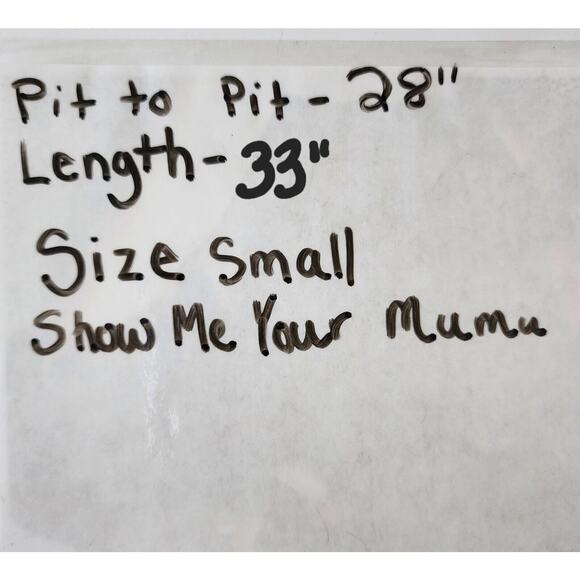 Pit to Pit - 28"
Length - 33"
Size Small
Show Me Your Mumu